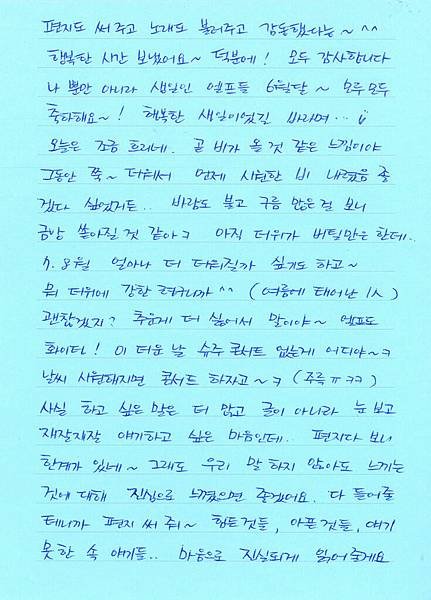 편지도 써 주고 노래도 불러주고 감동했다는~^^
행복한 시간 보냈어요~ 덕분에! 모두 감사합니다
나 뿐만 아니라 생일인 엘프들 6월달~ 모두모두
축하해요~! 행복한 생일이었길 바라며…
오늘은 조금 흐리네. 곧 비가 올 것 같은 느낌이야
그동안 쭉~ 더워서 언제 시원한 비 내렸음 좋
겠다 싶었거든.. 바람도 불고 구름 많은걸 보니
금방 쏟아질 것 같아ㅋ 아직 더위가 버틸만은 한데..
7. 8월 얼마나 더 더워질까 싶기도 하고~
뭐 더위에 강한 려우니까^^ (여름에 태어난 1人)
괜찮겠지? 추운게 더 싫어서 말이야~ 엘프도
화이팅! 이 더운 날 슈주 콘서트 없는게 어디야~ㅋ
날씨 시원해지면 콘서트 하자고~ㅋ (주륵ㅠㅋㅋ)
사실 하고 싶은 말은 더 많고 글이 아니라 눈 보고
재잘재잘 얘기하고 싶은 마음인데.. 편지다 보니
한계가 있네~ 그래도 우리 말 하지 않아도 느끼는
것에 대해 진심으로 느꼈으면 좋겠어요. 다 들어줄
테니까 편지 써 줘~ 힘든것들, 아픈것들, 얘기
못한 속 얘기들.. 마음으로 진실되게 읽어줄게요